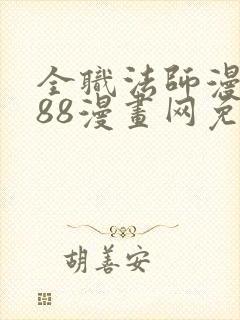 全職法師漫
88漫畫网免
胡善安